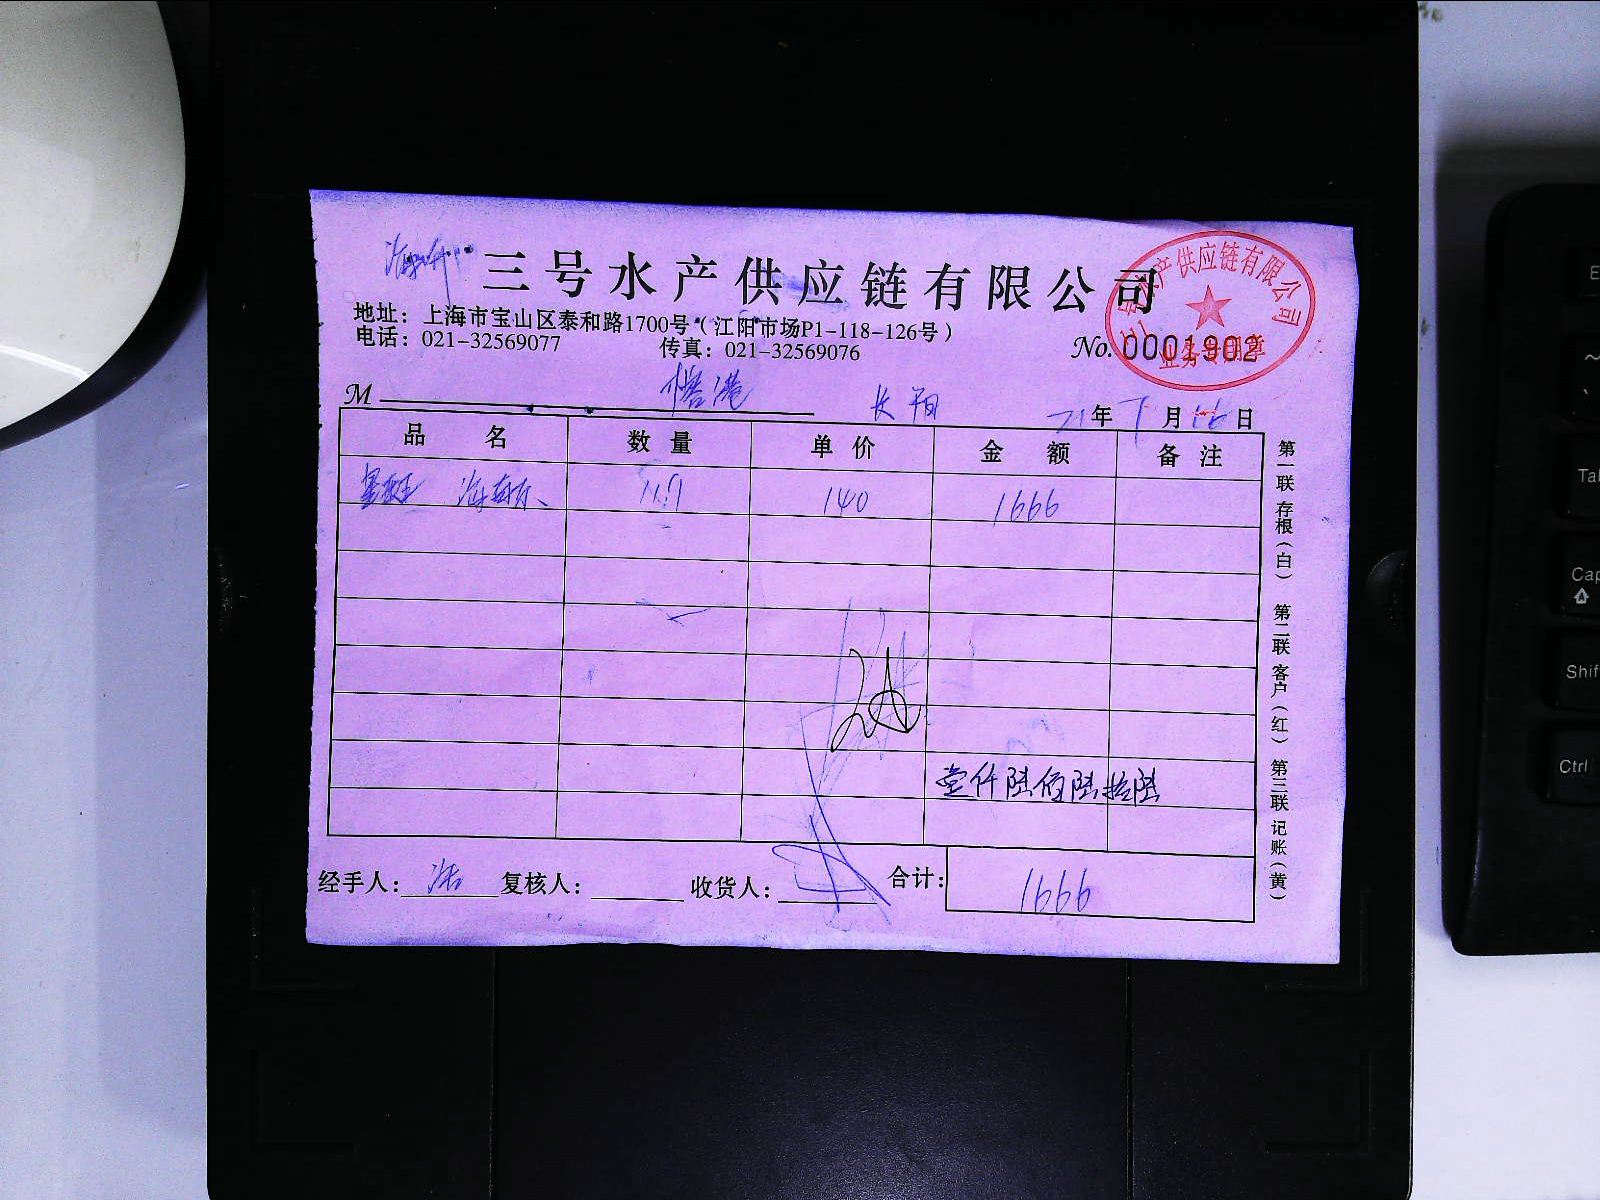 三号水产供应链有限公司
地址：上海市宝山区泰和路1700号（江阳市场P1-118-126号）
电话：021-32569077 传真：021-32569076
No. 0001902
三号水产供应链有限公司
业务专用章
M 港 长阳 21年7月16日
品名 数量 单价 金额 备注
11.9 140 1666
壹仟陆佰陆拾陆
经手人： 复核人： 收货人： 合计： 1666
第一联 存根（白） 第二联 客户（红） 第三联 记账（黄）
E
~
`
Tab
Cap
Shif
Ctrl